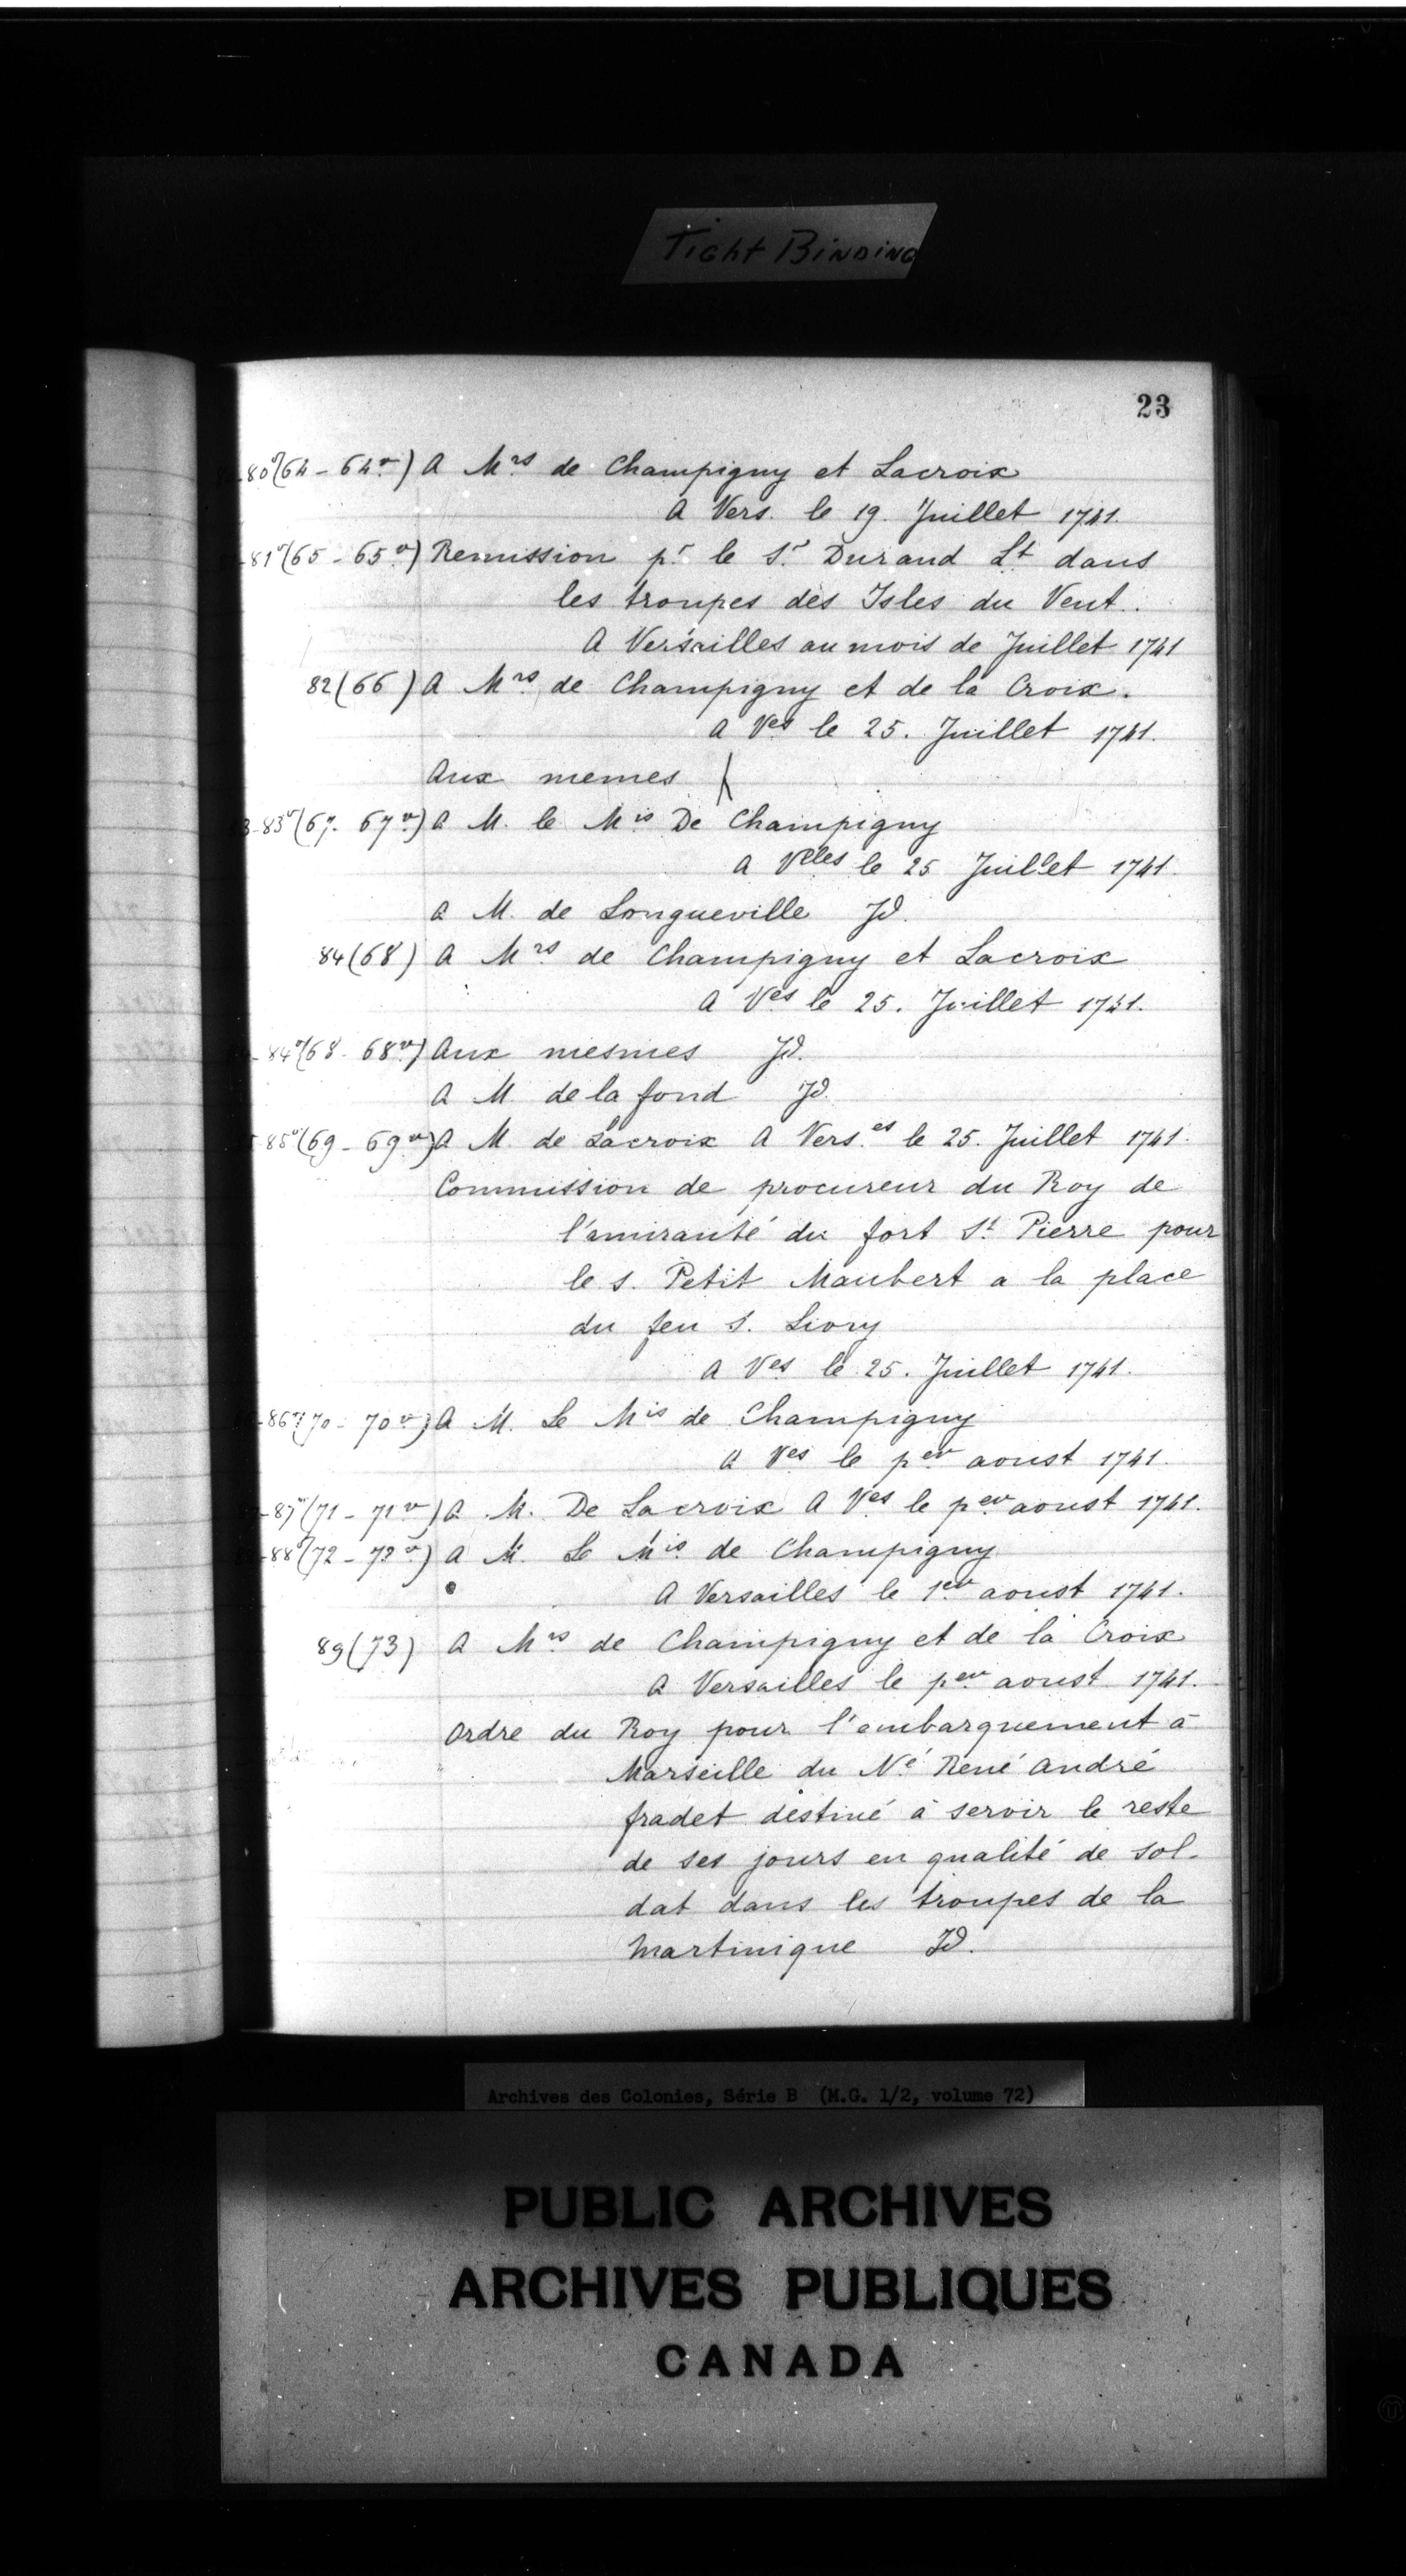 Tight Binding
23
80v(64 - 64v) A Mrs de Champigny et Lacroix
A Vers. le 19. Juillet 1741.
81v(65 - 65v) Remission pr le Sr Durand Lt dans
les troupes des Isles du Vent.
A Versailles au mois de Juillet 1741
82(66) A Mrs de Champigny et de la Croix.
A Ves le 25. Juillet 1741.
Aux memes
83v(67 - 67v) A M. le Mis De Champigny
A Vlles le 25 Juillet 1741.
A M. de Longueville Id.
84(68) A Mrs de Champigny et Lacroix
A Ves le 25. Juillet 1741.
84v(68 - 68v) Aux mesmes Id.
A M. de la fond Id.
85v(69 - 69v) A M. de Lacroix A Vers.es le 25. Juillet 1741.
Commission de procureur du Roy de
l'amirauté du fort St Pierre pour
le s. Petit Maubert a la place
du feu S. Liory
A Ves le 25. Juillet 1741.
86v(70 - 70v) A M. Le Mis de Champigny
A Ves le per aoust 1741.
87v(71 - 71v) A M. De Lacroix A Ves le per aoust 1741.
88v(72 - 72v) A M. Le Mis de Champigny
A Versailles le 1er aoust 1741.
89(73) A Mrs de Champigny et de la Croix
A Versailles le per aoust 1741.
Ordre du Roy pour l'embarquement à
Marseille du Né René André
fradet destiné à servir le reste
de ses jours en qualité de sol-
dat dans les troupes de la
Martinique Id.
Archives des Colonies, Série B (M.G. 1/2, volume 72)
PUBLIC ARCHIVES
ARCHIVES PUBLIQUES
CANADA